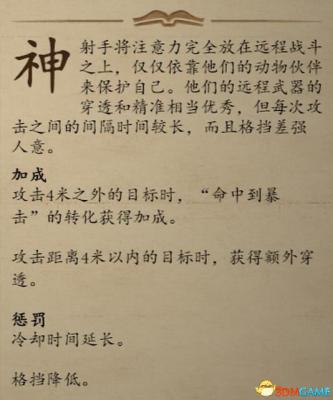 神射手将注意力完全放在远程战斗
之上，仅仅依靠他们的动物伙伴
来保护自己。他们的远程武器的
穿透和精准相当优秀，但每次攻
击之间的间隔时间较长，而且格挡差强
人意。
加成
攻击4米之外的目标时，“命中到暴
击”的转化获得加成。
攻击距离4米以内的目标时，获得额外穿
透。
惩罚
冷却时间延长。
格挡降低。
3DMGAME